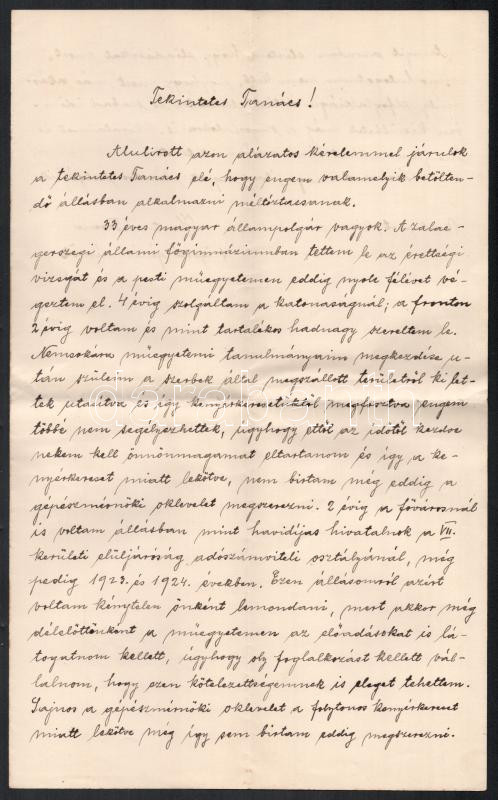 Tekintetes Tanács!
Alulirott azon alázatos kérelemmel járulok
a tekintetes Tanács elé, hogy engem valamelyik betölten-
dő állásban alkalmazni méltóztassanak.
33 éves magyar állampolgár vagyok. A zalae-
gerszegi állami főgimnáziumban tettem le az érettségi
vizsgát és a pesti műegyetemen eddig nyolc félévet vé-
geztem el. 4 évig szolgáltam a katonaságnál; a fronton
2 évig voltam és mint tartalékos hadnagy szereltem le.
Nemsokára műegyetemi tanulmányaim megkezdése u-
tán szüleim a szerbek által megszállott területről ki let-
tek utasítva és így kenyérkeresetüktől megfosztva engem
többé nem segélyezhettek, úgyhogy ettől az időtől kezdve
nekem kell önnönmagamat eltartanom és így a ke-
nyérkereset miatt lekötve, nem birtam még eddig a
gépészmérnöki oklevelet megszerezni. 2 évig a fővárosnál
is voltam állásban mint havidíjas hivatalnok a VII.
kerületi elüljáróság adószámviteli osztályánál, még
pedig 1923. és 1924. években. Ezen állásomról azért
voltam kénytelen önként lemondani, mert akkor még
délelőttönként a műegyetemen az előadásokat is lá-
togatnom kellett, úgyhogy oly foglalkozást kellett vál-
lalnom, hogy ezen kötelezettségemnek is eleget tehettem.
Sajnos a gépészmérnöki oklevelet a folytonos kenyérkereset
miatt lekötve még így sem birtam eddig megszerezni.